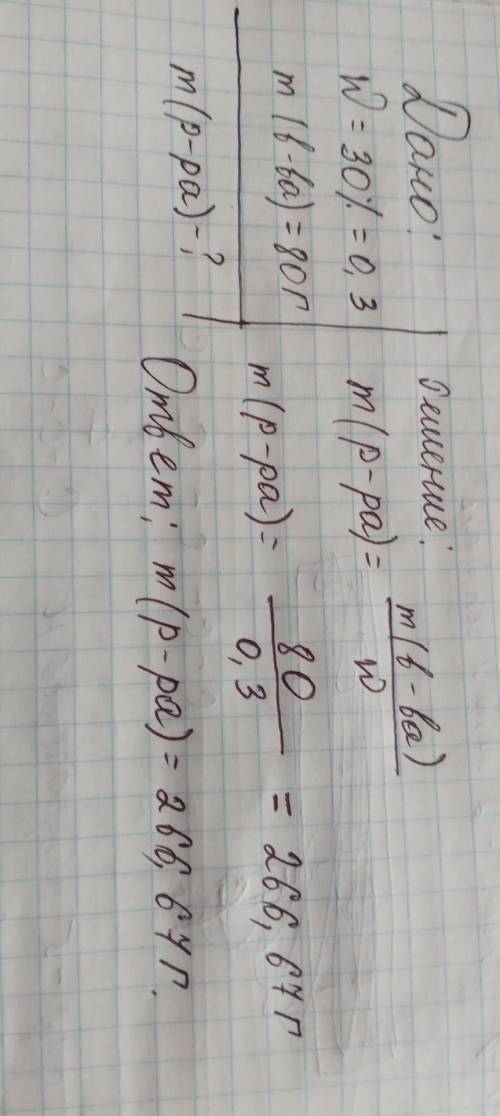 Дано:
W = 30% = 0,3
m(в-ва) = 80г
m(р-ра) - ?
Решение:
m(р-ра) = m(в-ва) / W
m(р-ра) = 80 / 0,3 = 266,67г
Ответ: m(р-ра) = 266,67г.